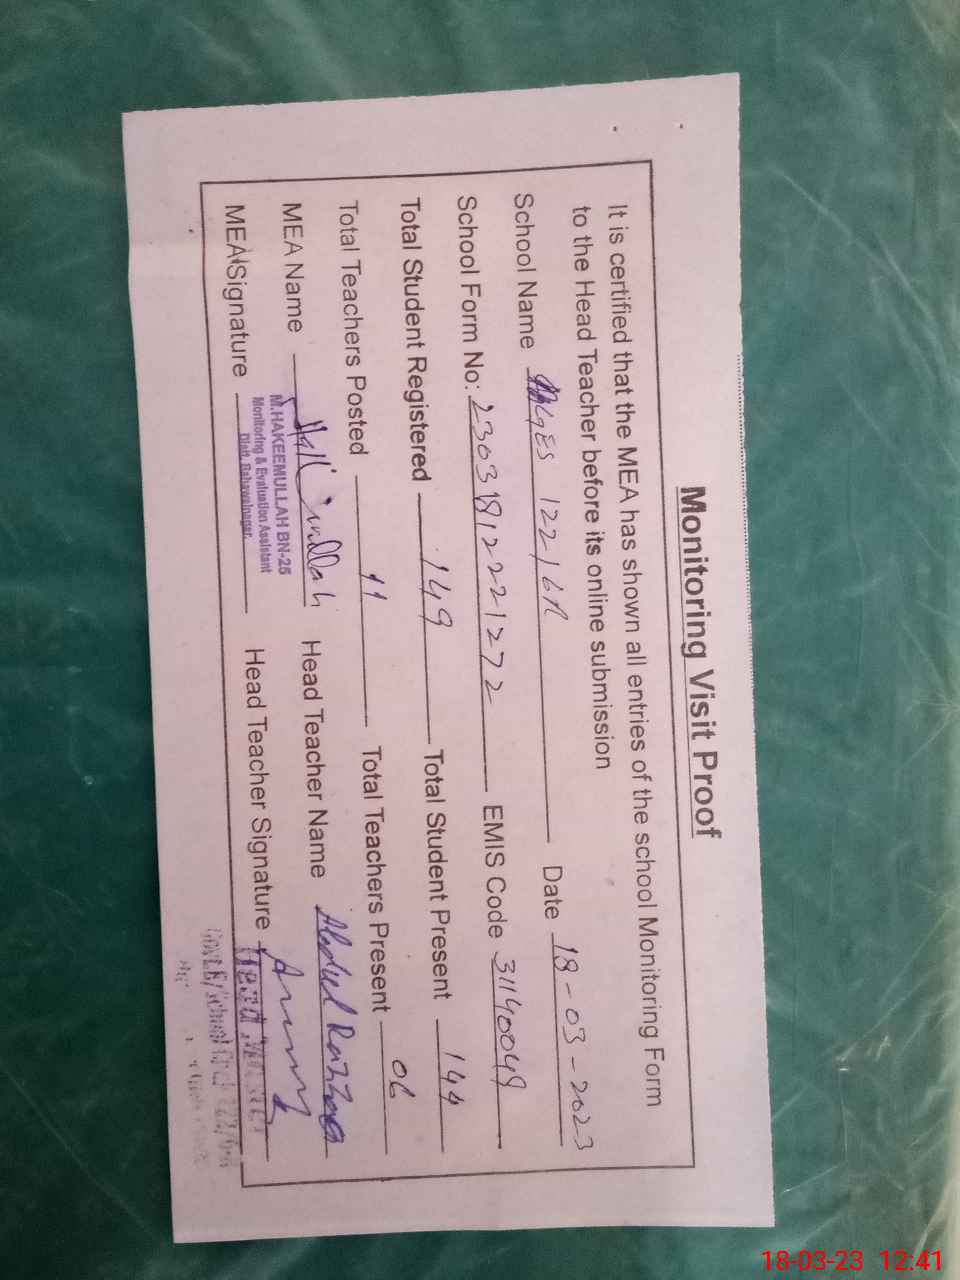 Monitoring Visit Proof
It is certified that the MEA has shown all entries of the school Monitoring Form
to the Head Teacher before its online submission
School Name GES 122/6R Date 18-03-2023
School Form No: 23031812221272 EMIS Code 31140049
Total Student Registered 149 Total Student Present 144
Total Teachers Posted 11 Total Teachers Present 06
MEA Name Head Teacher Name Abdul Razzaq
M.HAKEEMULLAH BN-25
Monitoring & Evaluation Assistant
Distt. Bahawalnagar.
MEA Signature Head Teacher Signature
Head Master
18-03-23 12:41